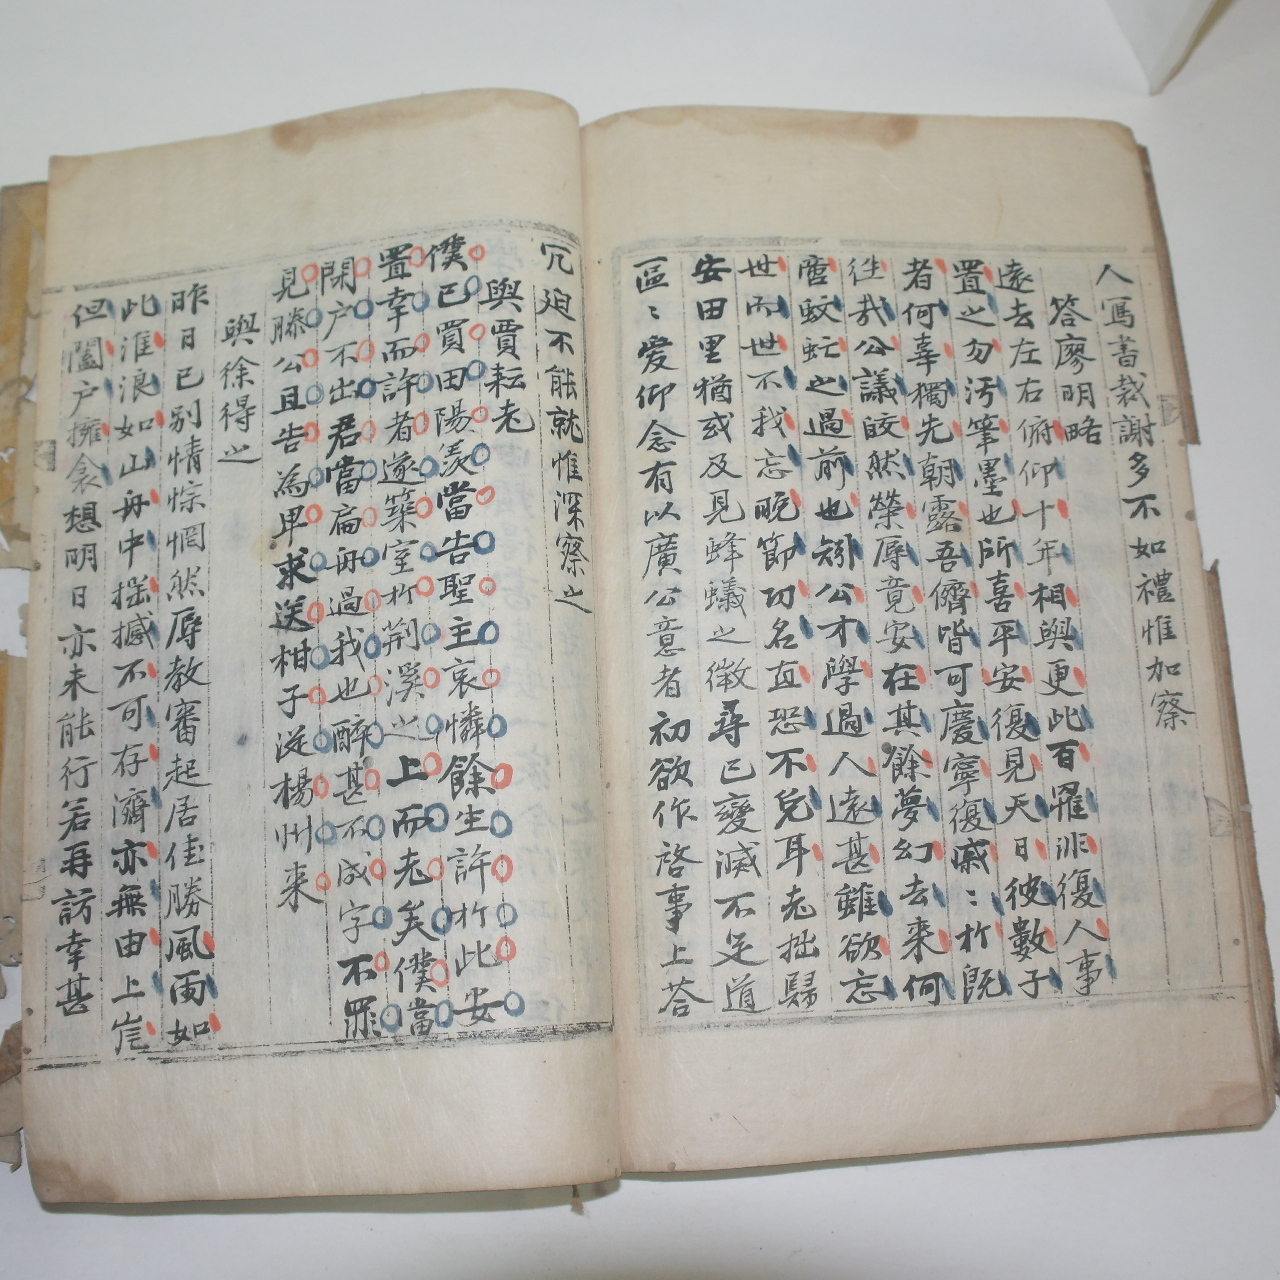 人寫書裁謝多不如禮惟加察
答廖明略
遠去左右俯仰十年相與更此百罹非復人事
置之勿汚筆墨也所喜平安復見天日彼數子
者何辜獨先朝露吾儕皆可慶寧復戚〻於既
往哉公議皎然榮辱竟安在其餘夢幻去來何
啻蚊虻之過前也矧公才學過人遠甚雖欲忘
世而世不我忘晩節功名直恐不免耳老拙歸
安田里猶或及見蜂蟻之微尋已變滅不足道
區〻愛仰念有以廣公意者初欲作啓事上荅
冗迫不能就惟深察之
與賈耘老
僕已買田陽羨當告聖主哀憐餘生許於此安
置幸而許者遂築室於荆溪之上而老矣僕當
閉户不出君當扁舟過我也醉甚不成字不罪
見滕公且告為甲求送柑子湓楊州来
與徐得之
昨日已别情悰惘然辱教審起居佳勝風雨如
此淮浪如山舟中揺撼不可存濟亦無由上岸
但闔户擁衾想明日亦未能行若再訪幸甚